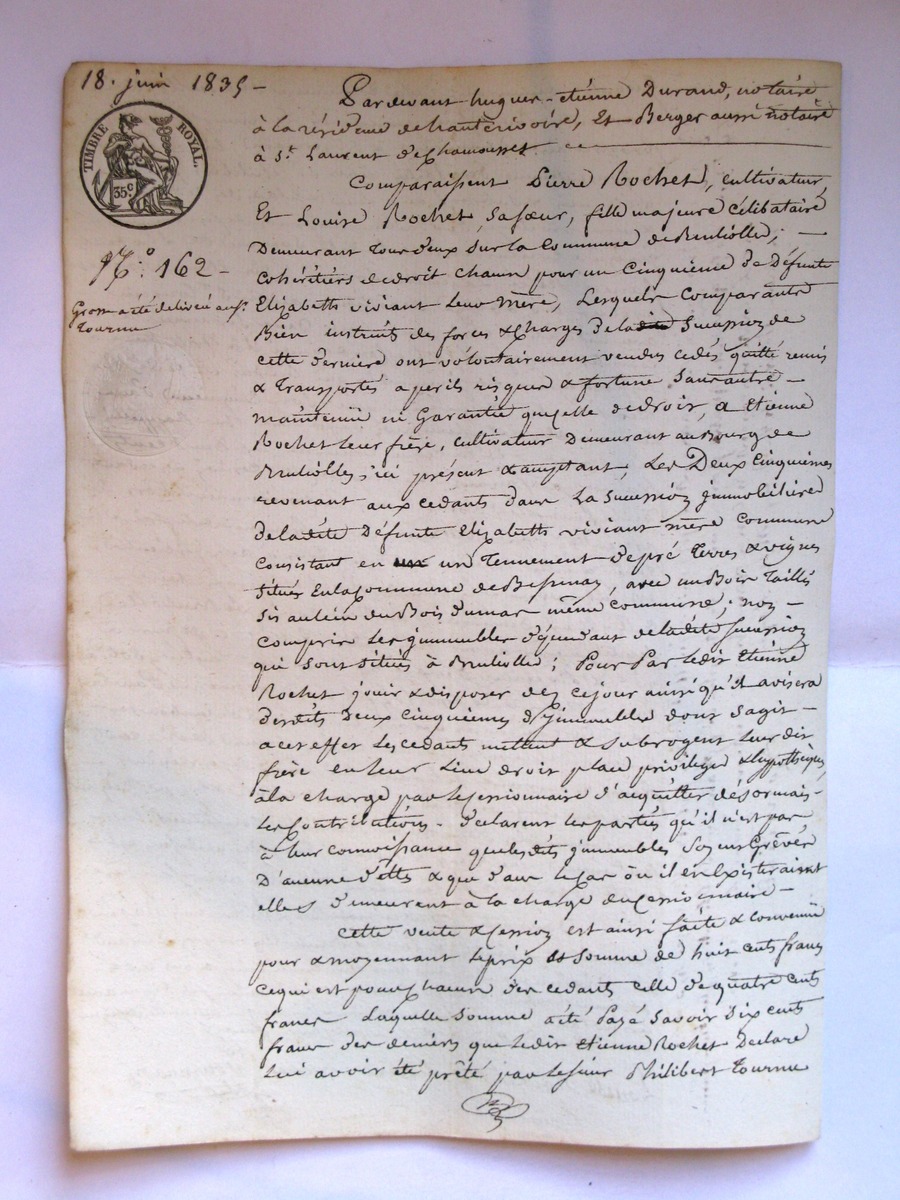 18. juin 1835 -
TIMBRE ROYAL.
35 c
N.o 162 -
Grosse a été délivré au sr.
Tournu
Pardevant hugues-étienne Durand, notaire
à la résidence de hauterivoire, Et Berger aussi notaire
à St. Laurent de chamousset
Comparaissent Pierre Rochet, cultivateur,
Et Louise Rochet, sa sœur, fille majeure célibataire
Demeurant tous deux sur la commune de Brulliolle; -
cohéritiers de droit chacun pour un cinquieme de Défunte
Elizabeth viviant leur mère, Lesquels comparants
Bien instruits des forces & charges de ladite Succession de
cette derniere ont volontairement vendus cedés quitté remis
& transportés a perils risques & fortune sans autre -
maintenüe ni Garantie que celle de droit, a Etienne
Rochet leur frère, cultivateur Demeurant au Bourg de
Brulliolles, ici présent & acceptant, Les Deux Cinquiemes
revenant aux cedants dans La Succession immobiliere
de ladite Défunte Elizabeth viviant mère commune
Consistant en un Tennement de pré terres & vignes
situés En la commune de Bessenay, avec un Bois Taillis
sis au lein du Bois dumas même commune; non -
compris les immeubles dépendant de ladite succession
qui sont situés à Brulliolle; Pour Par ledit Etienne
Rochet jouir & disposer dès ce jour ainsi qu'il avisera
desdits deux cinquiemes d'immeubles dont s'agit -
a cet effet les cedants mettent & subrogent leur dit
frère en leur lieu droit place privileges & hypothèques,
à la charge par le cessionnaire d'acquitter désormais
les contributions. Déclarent les parties qu'il n'est pas
à leur connoissance que lesdits immeubles soyent Grévés
D'aucune dettes & que dans le cas où il en Existeraient
elles demeurent à la charge du cessionnaire -
Cette vente & cession est ainsi faite & convenüe
pour & moyennant le prix & somme de huit cents francs
ce qui est pour chacun des cedants celle de quatre cents
francs Laquelle somme a été Payé savoir six cents
francs des deniers que ledit Etienne Rochet Déclare
lui avoir été prêté par le sieur Philibert Tournu